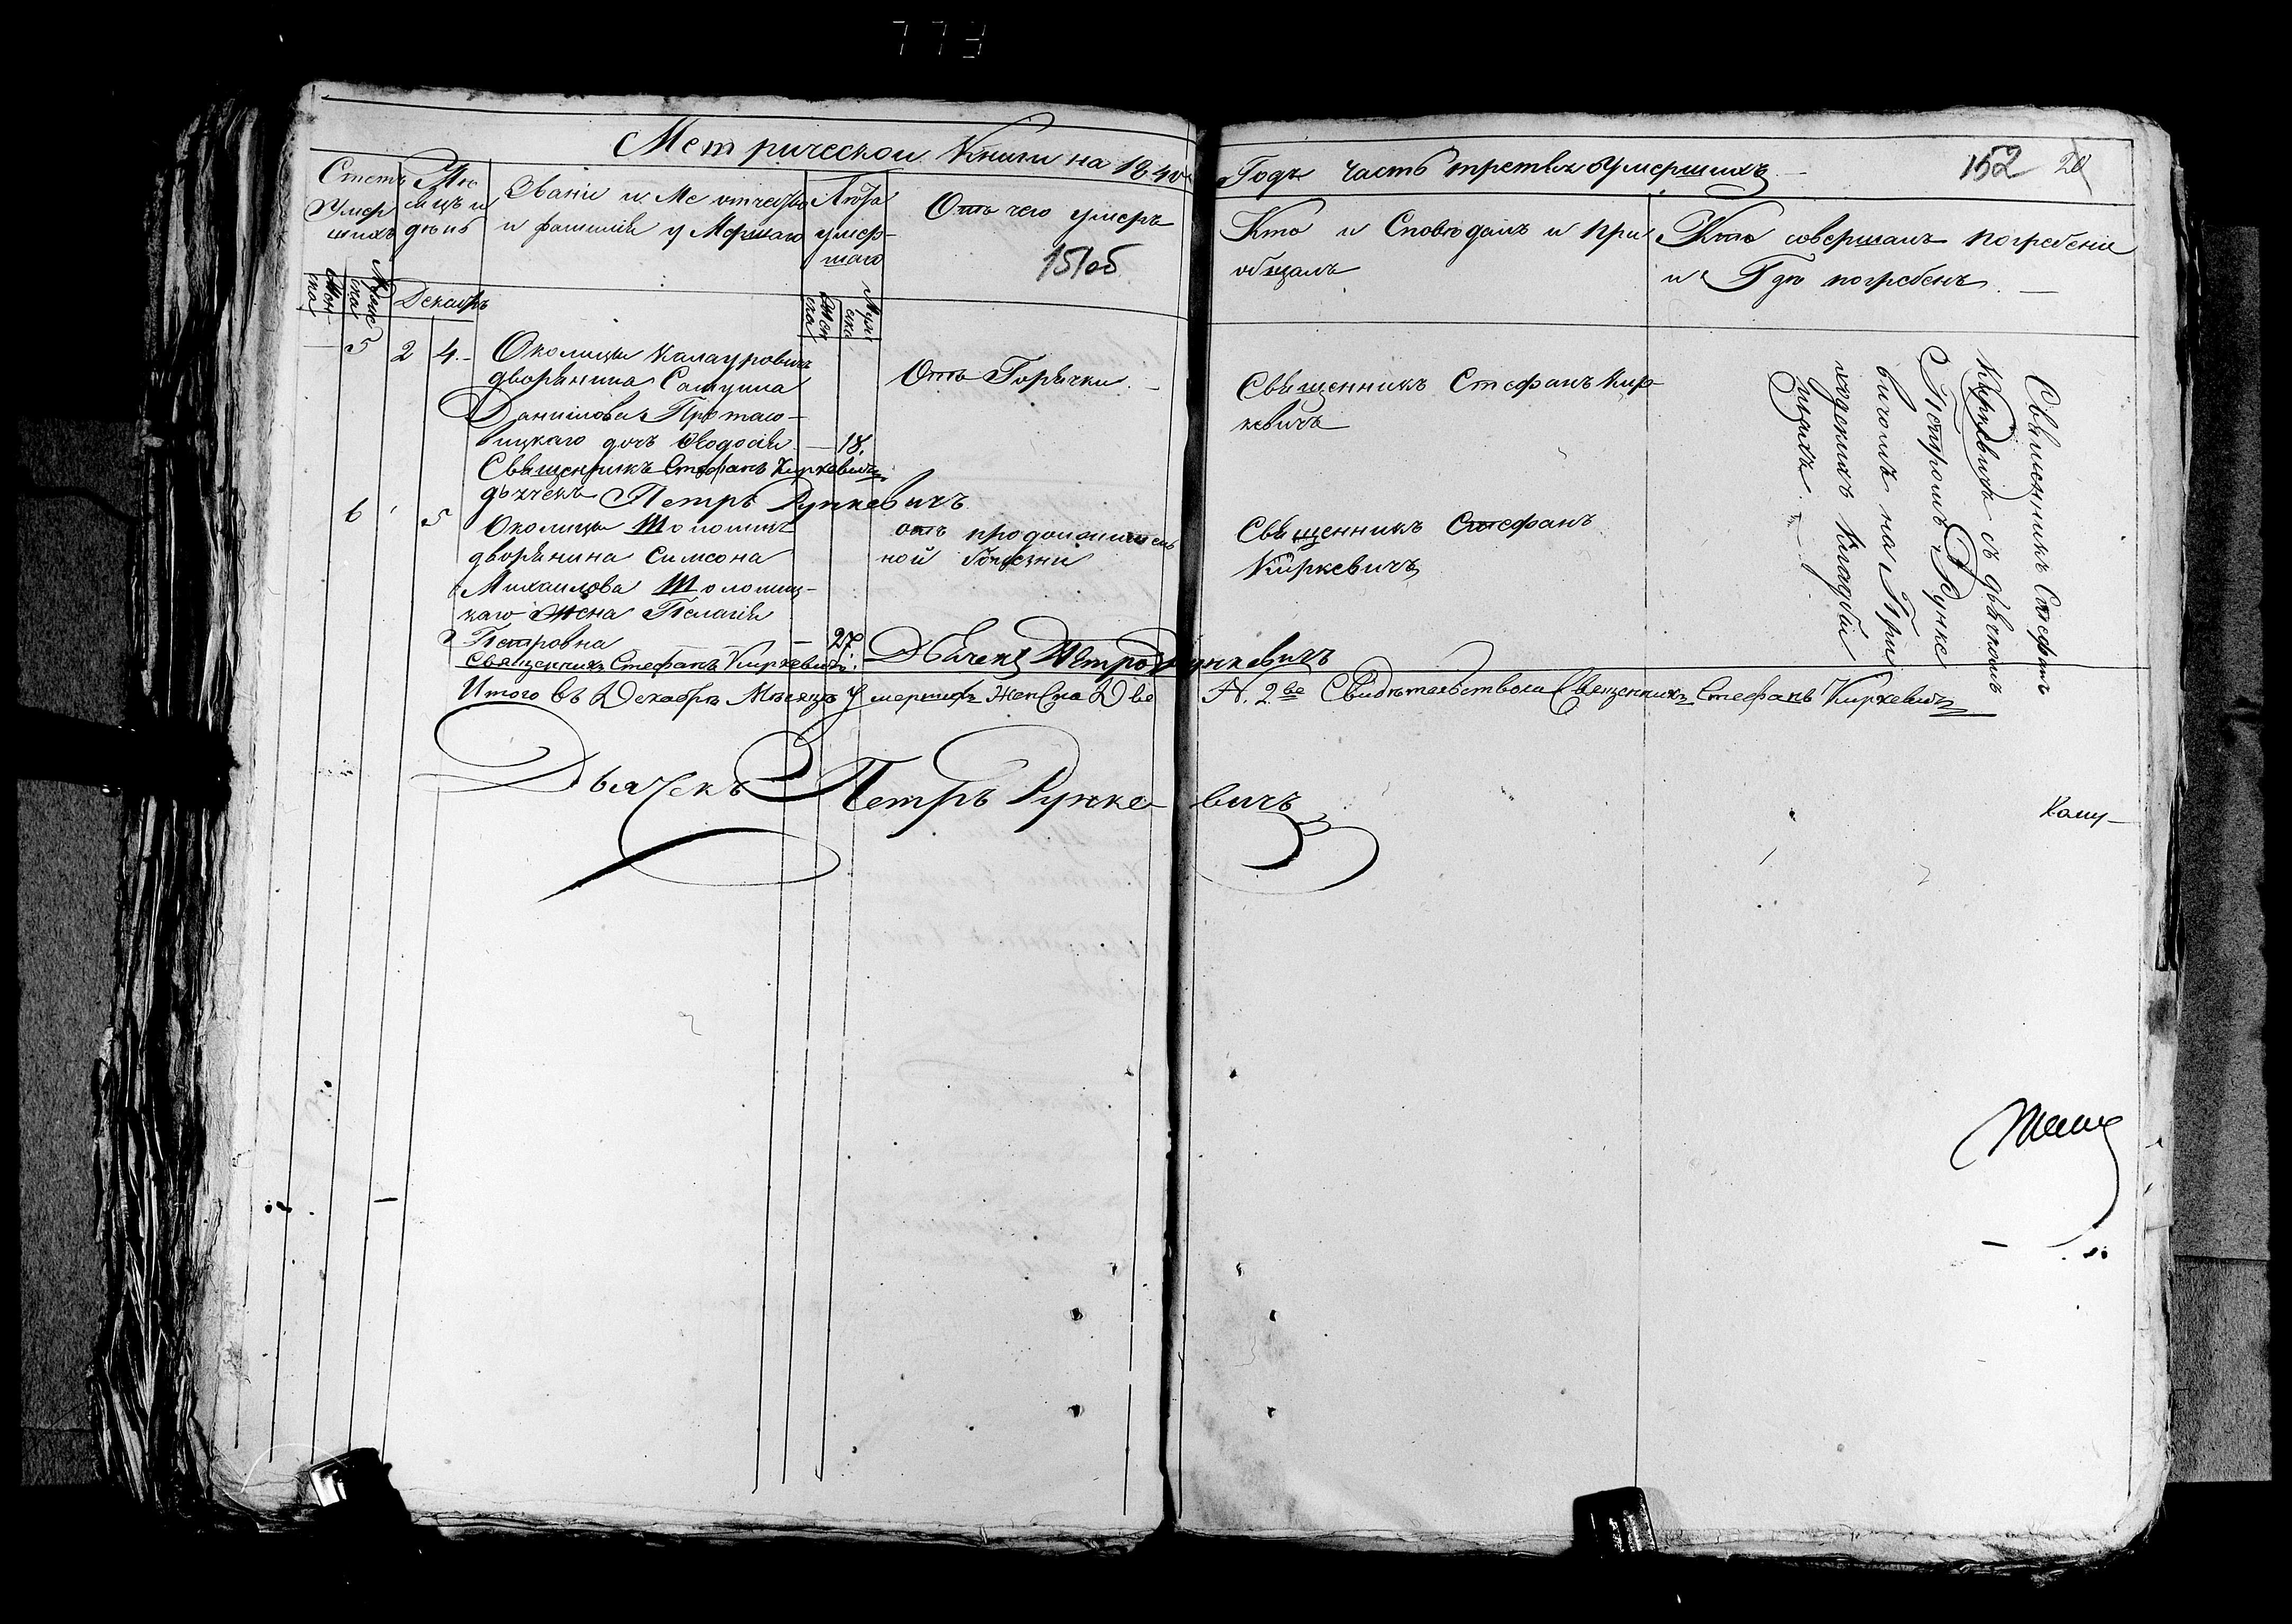 773
Метрической Книги на 1840
Годъ часть третья о Умершихъ
152 20
Счетъ Умершихъ
Мѣсяцъ и день
Званіе и Мя отчество и фамилія у Мершаго
Лѣта умершаго
Отъ чего умеръ
151об
Кто и Споведалъ и при
общалъ
Кто совершалъ погребеніе
и Где погребенъ
Декабрь
5 2 4.
Околицы Калауровичъ
дворянина Самуила
Данилова Протасо-
вицкаго дочь Феодосія — 18.
Отъ Горячки. —
Священникъ Стефанъ Кир-
кевичъ
Священникъ Стефанъ Киркевичъ
дьячекъ Петръ Рункевичъ
6 5
Околицы Толомицъ
дворянина Симеона
Михаилова Толомиц-
каго жена Пелагія
Петровна — 27.
отъ продолжитель
ной болезни
Священникъ Стефанъ
Киркевичъ
Священникъ Стефанъ Киркевичъ. Дьячекъ Петръ Рункевичъ
Священникъ Стефанъ
Киркевичъ съ дьячкомъ
Петромъ Рунке
вичомъ на При
ходскихъ кладби
щахъ. —
Итого въ Декабрѣ Мѣсяцѣ Умершихъ Женска Две А. 2ве Свидѣтельствовалъ Священникъ Стефанъ Киркевичъ
Дьячекъ Петръ Рункевичъ